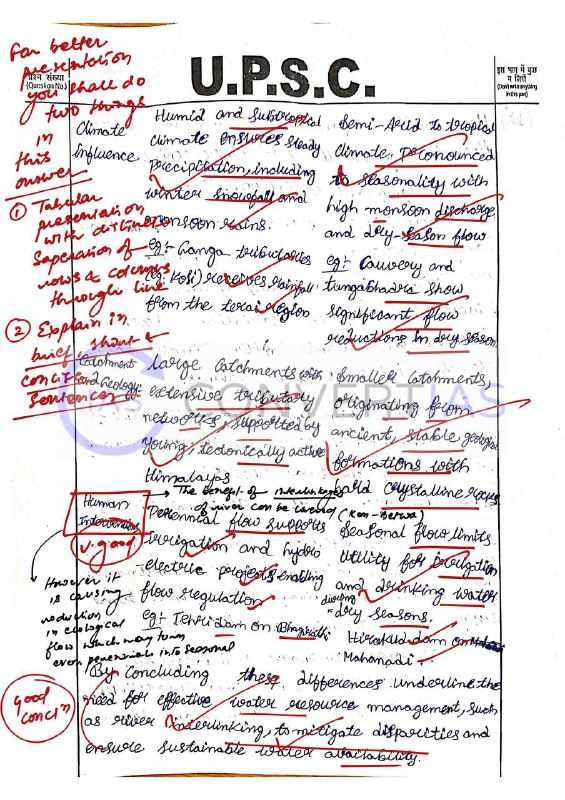 U.P.S.C.
प्रश्न संख्या
(Question No.)
इस भाग में कुछ
न लिखें
(Don't write anything
in this part)
For better
presentation
you shall do
two things
in
this
answer
① Tabular
presentation
with distinct
Saperation of
rows & columns
through line
② Explain in
brief short &
concise
sentences
Climate
influence
Humid and subtropical
climate ensures steady
precipitation, including
winter snowfall and
monsoon rains.
eg:- Ganga tributaries
(eg: Kosi) receives rainfall
from the terai region
Semi-Arid to tropical
climate, pronounced
to seasonality with
high monsoon discharge
and dry-sason flow
eg:- Cauvery and
Tungabhadra show
significant flow
reductions in dry season
Catchment
and Geology
large catchments with
extensive tributary
networks, supported by
young, tectonically active
Himalayas
Smaller catchments,
originating from
ancient, stable geological
formations with
hard crystalline rocks
CONVERTIAS
IAS
Human
Intervention
v. good
→ The benefit of interlinking
of river can be cited (Ken-Betwa)
Perennial flow supports
irrigation and hydro
-electric projects enabling
flow regulation
eg:- Tehri dam on Bhagirathi
Seasonal flow limits
utility for irrigation
and drinking water
during
dry seasons.
Hirakud dam on
Mahanadi.
However it
is causing
reduction
in ecological
flow which may turn
even perennials into seasonal
By Concluding these differences underline the
need for effective water resource management, such
as river interlinking, to mitigate disparities and
ensure sustainable water availability.
Good
conclⁿ